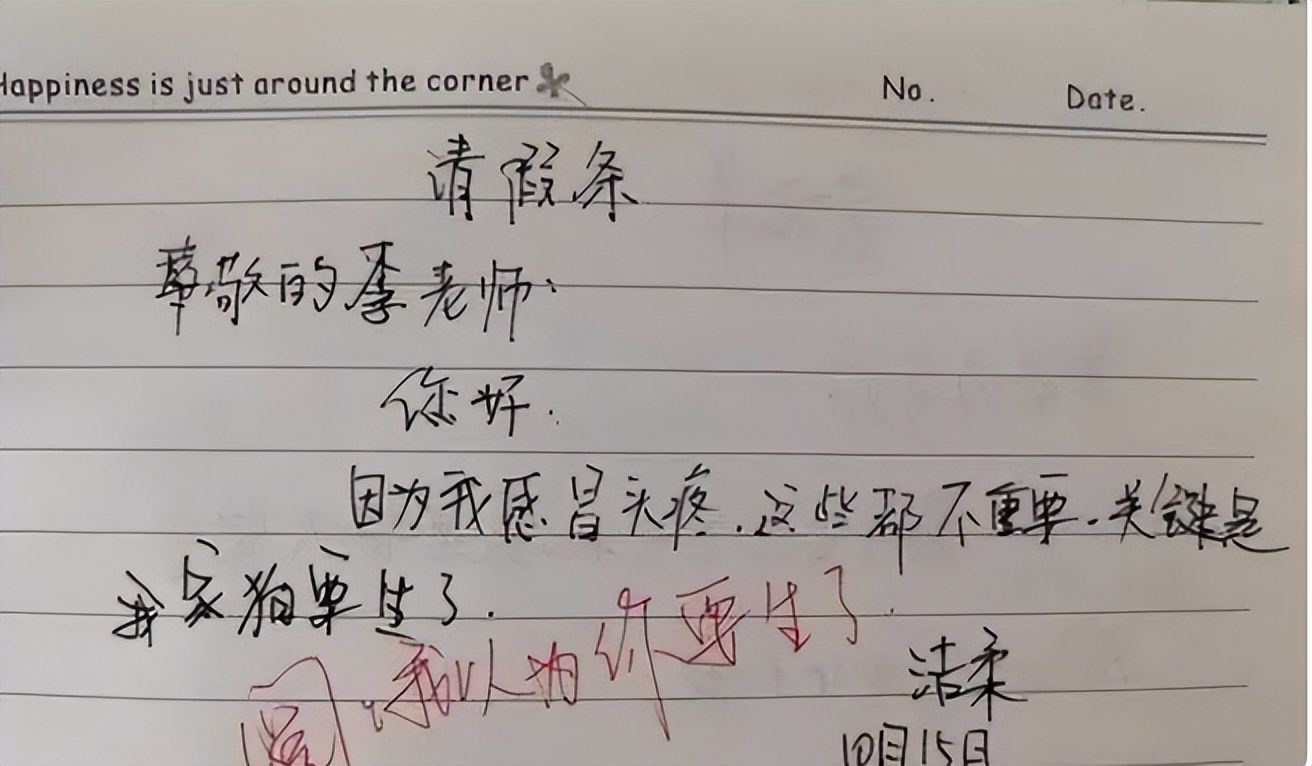 Happiness is just around the corner
No.
Date.
请假条
尊敬的李老师:
你好.
因为我感冒头疼.这些都不重要.关键是
我家狗要生了.
我以为你要生了.
洁柔
10月15日